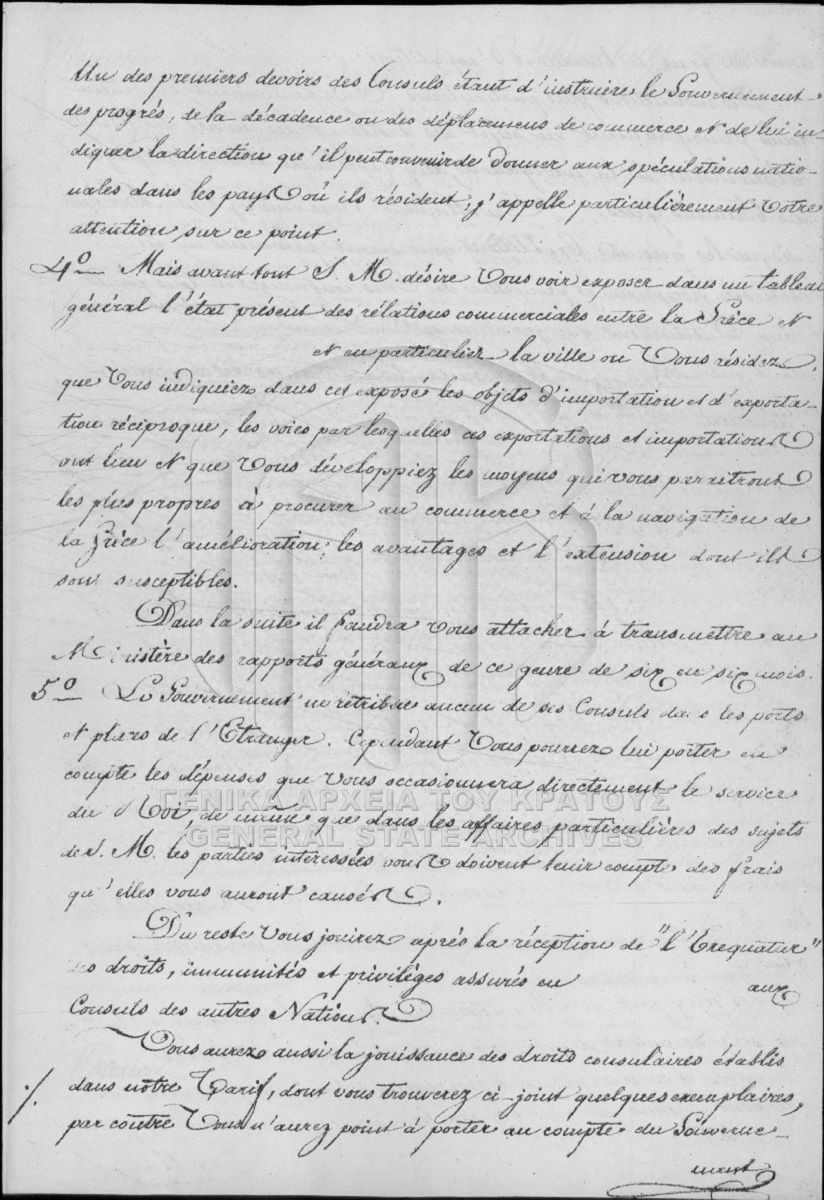 Un des premiers devoirs des Consuls étant d'instruire le Gouvernement
des progrès, de la décadence ou des déplacemens de commerce et de lui in-
diquer la direction qu'il peut convenir de donner aux spéculations natio-
nales dans les pays où ils résident, j'appelle particulièrement Votre
attention sur ce point
4º Mais avant tout S. M. désire Vous voir exposer dans un tableau
général l'état présent des rélations commerciales entre la Grèce et
et en particulier la ville ou Vous résidez,
que Vous indiquiez dans cet exposé les objets d'importation et d'exporta-
tion réciproque, les voies par lesquelles ces exportations et importations
ont lieu et que Vous développiez les moyens qui vous paraitront
les plus propres à procurer au commerce et à la navigation de
la Grèce l'amélioration, les avantages et l'extension dont ils
sont susceptibles.
Dans la suite il faudra vous attacher à transmettre au
Ministère des rapports généraux de ce genre de six en six mois.
5º Le Gouvernement ne rétribue aucun de ses Consuls dans les ports
et places de l'Etranger. Cependant Vous pourrez lui porter en
compte les dépenses que vous occasionnera directement le service
du Roi, de même que dans les affaires particulières des sujets
de S. M. les parties interessées vous doivent tenir compte des frais
qu'elles vous auront causés.
Du reste Vous jouirez après la réception de "l'Exequatur"
des droits, immunités et privilèges assurés en
aux
Consuls des autres Nations.
Vous aurez aussi la jouissance des droits consulaires établis
./. dans notre Tarif, dont vous trouverez ci-joint quelques exemplaires,
par contre Vous n'aurez point à porter au compte du Gouverne-
ment
ΓΕΝΙΚΑ ΑΡΧΕΙΑ ΤΟΥ ΚΡΑΤΟΥΣ
GENERAL STATE ARCHIVES